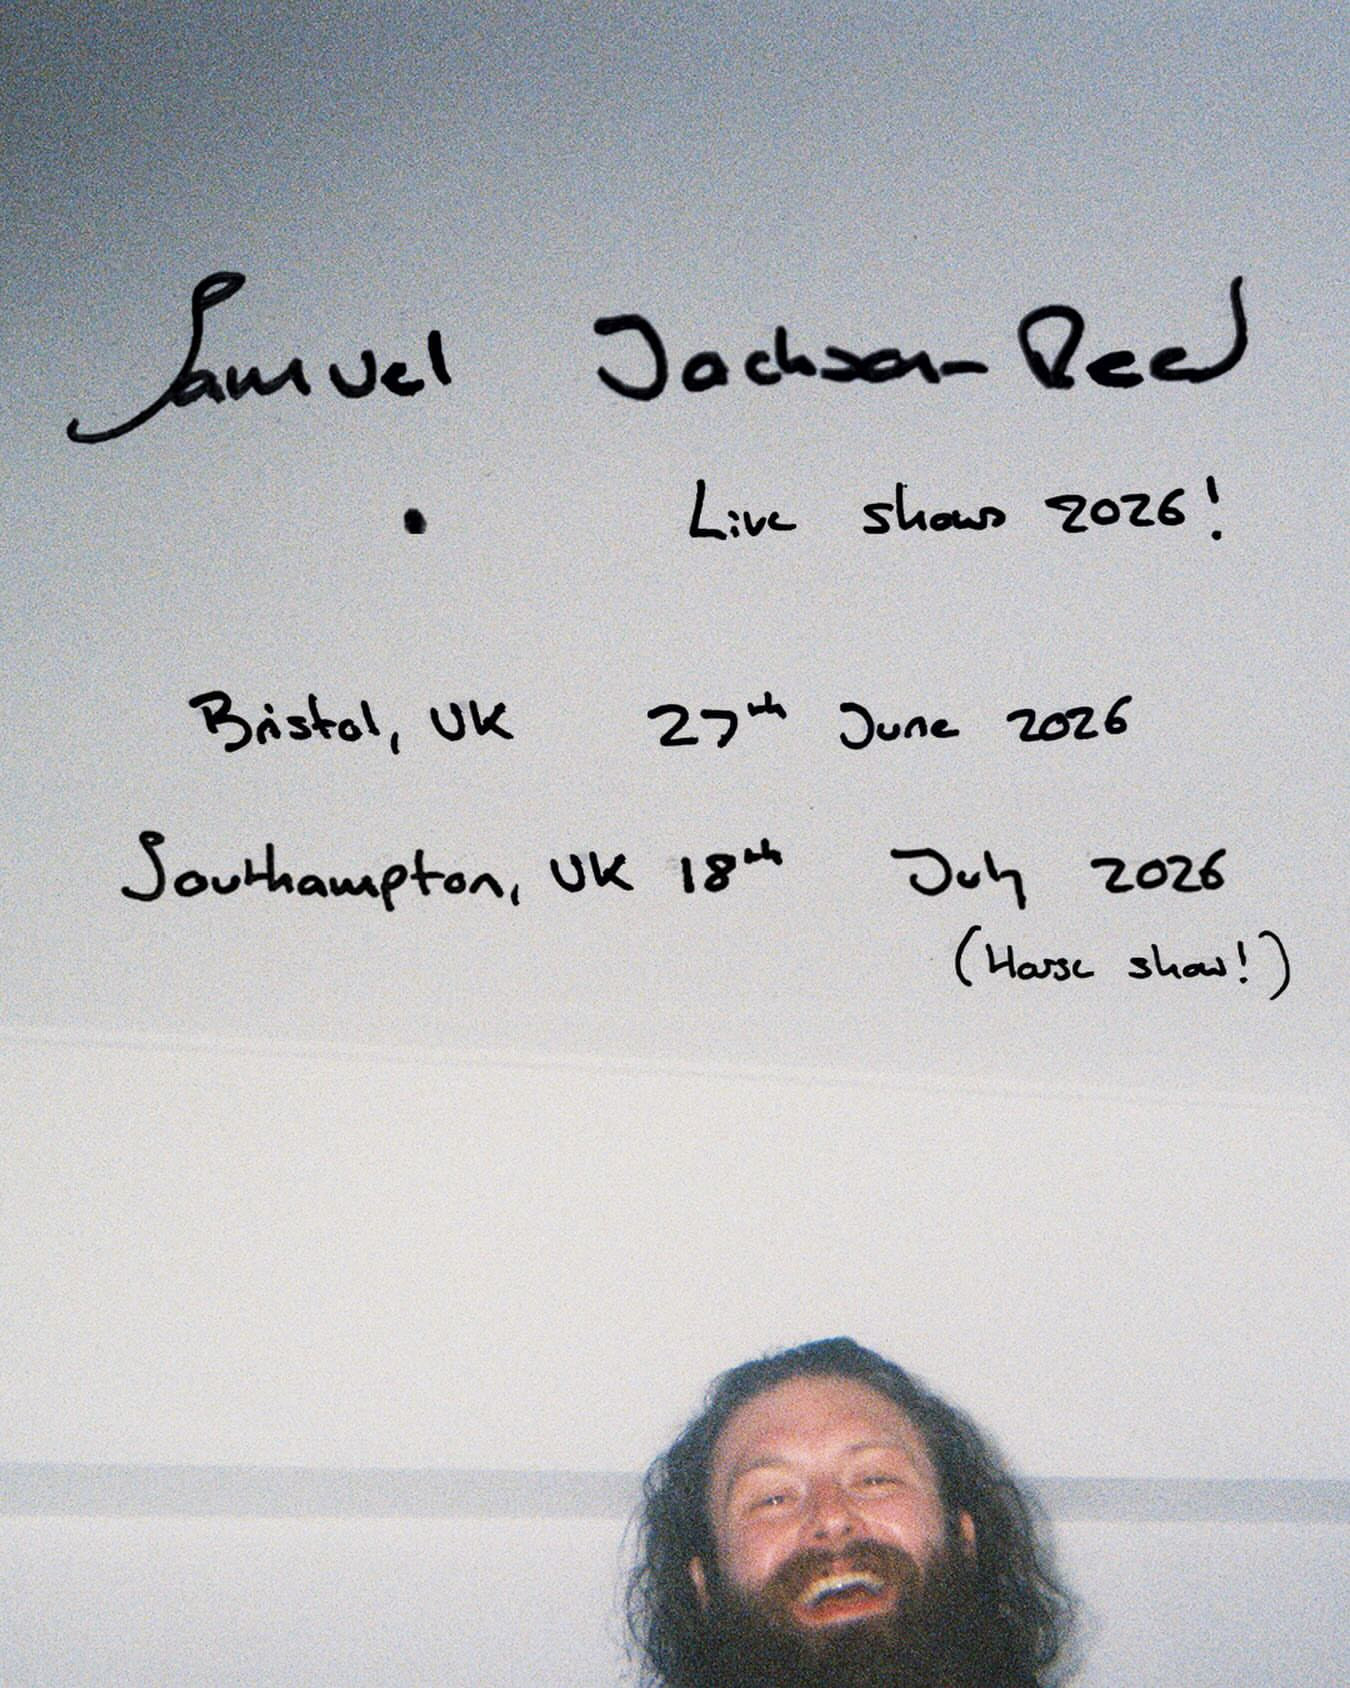 Samuel Jackson-Reed
Live shows 2026!
Bristol, UK 27th June 2026
Southampton, UK 18th July 2026
(House show!)